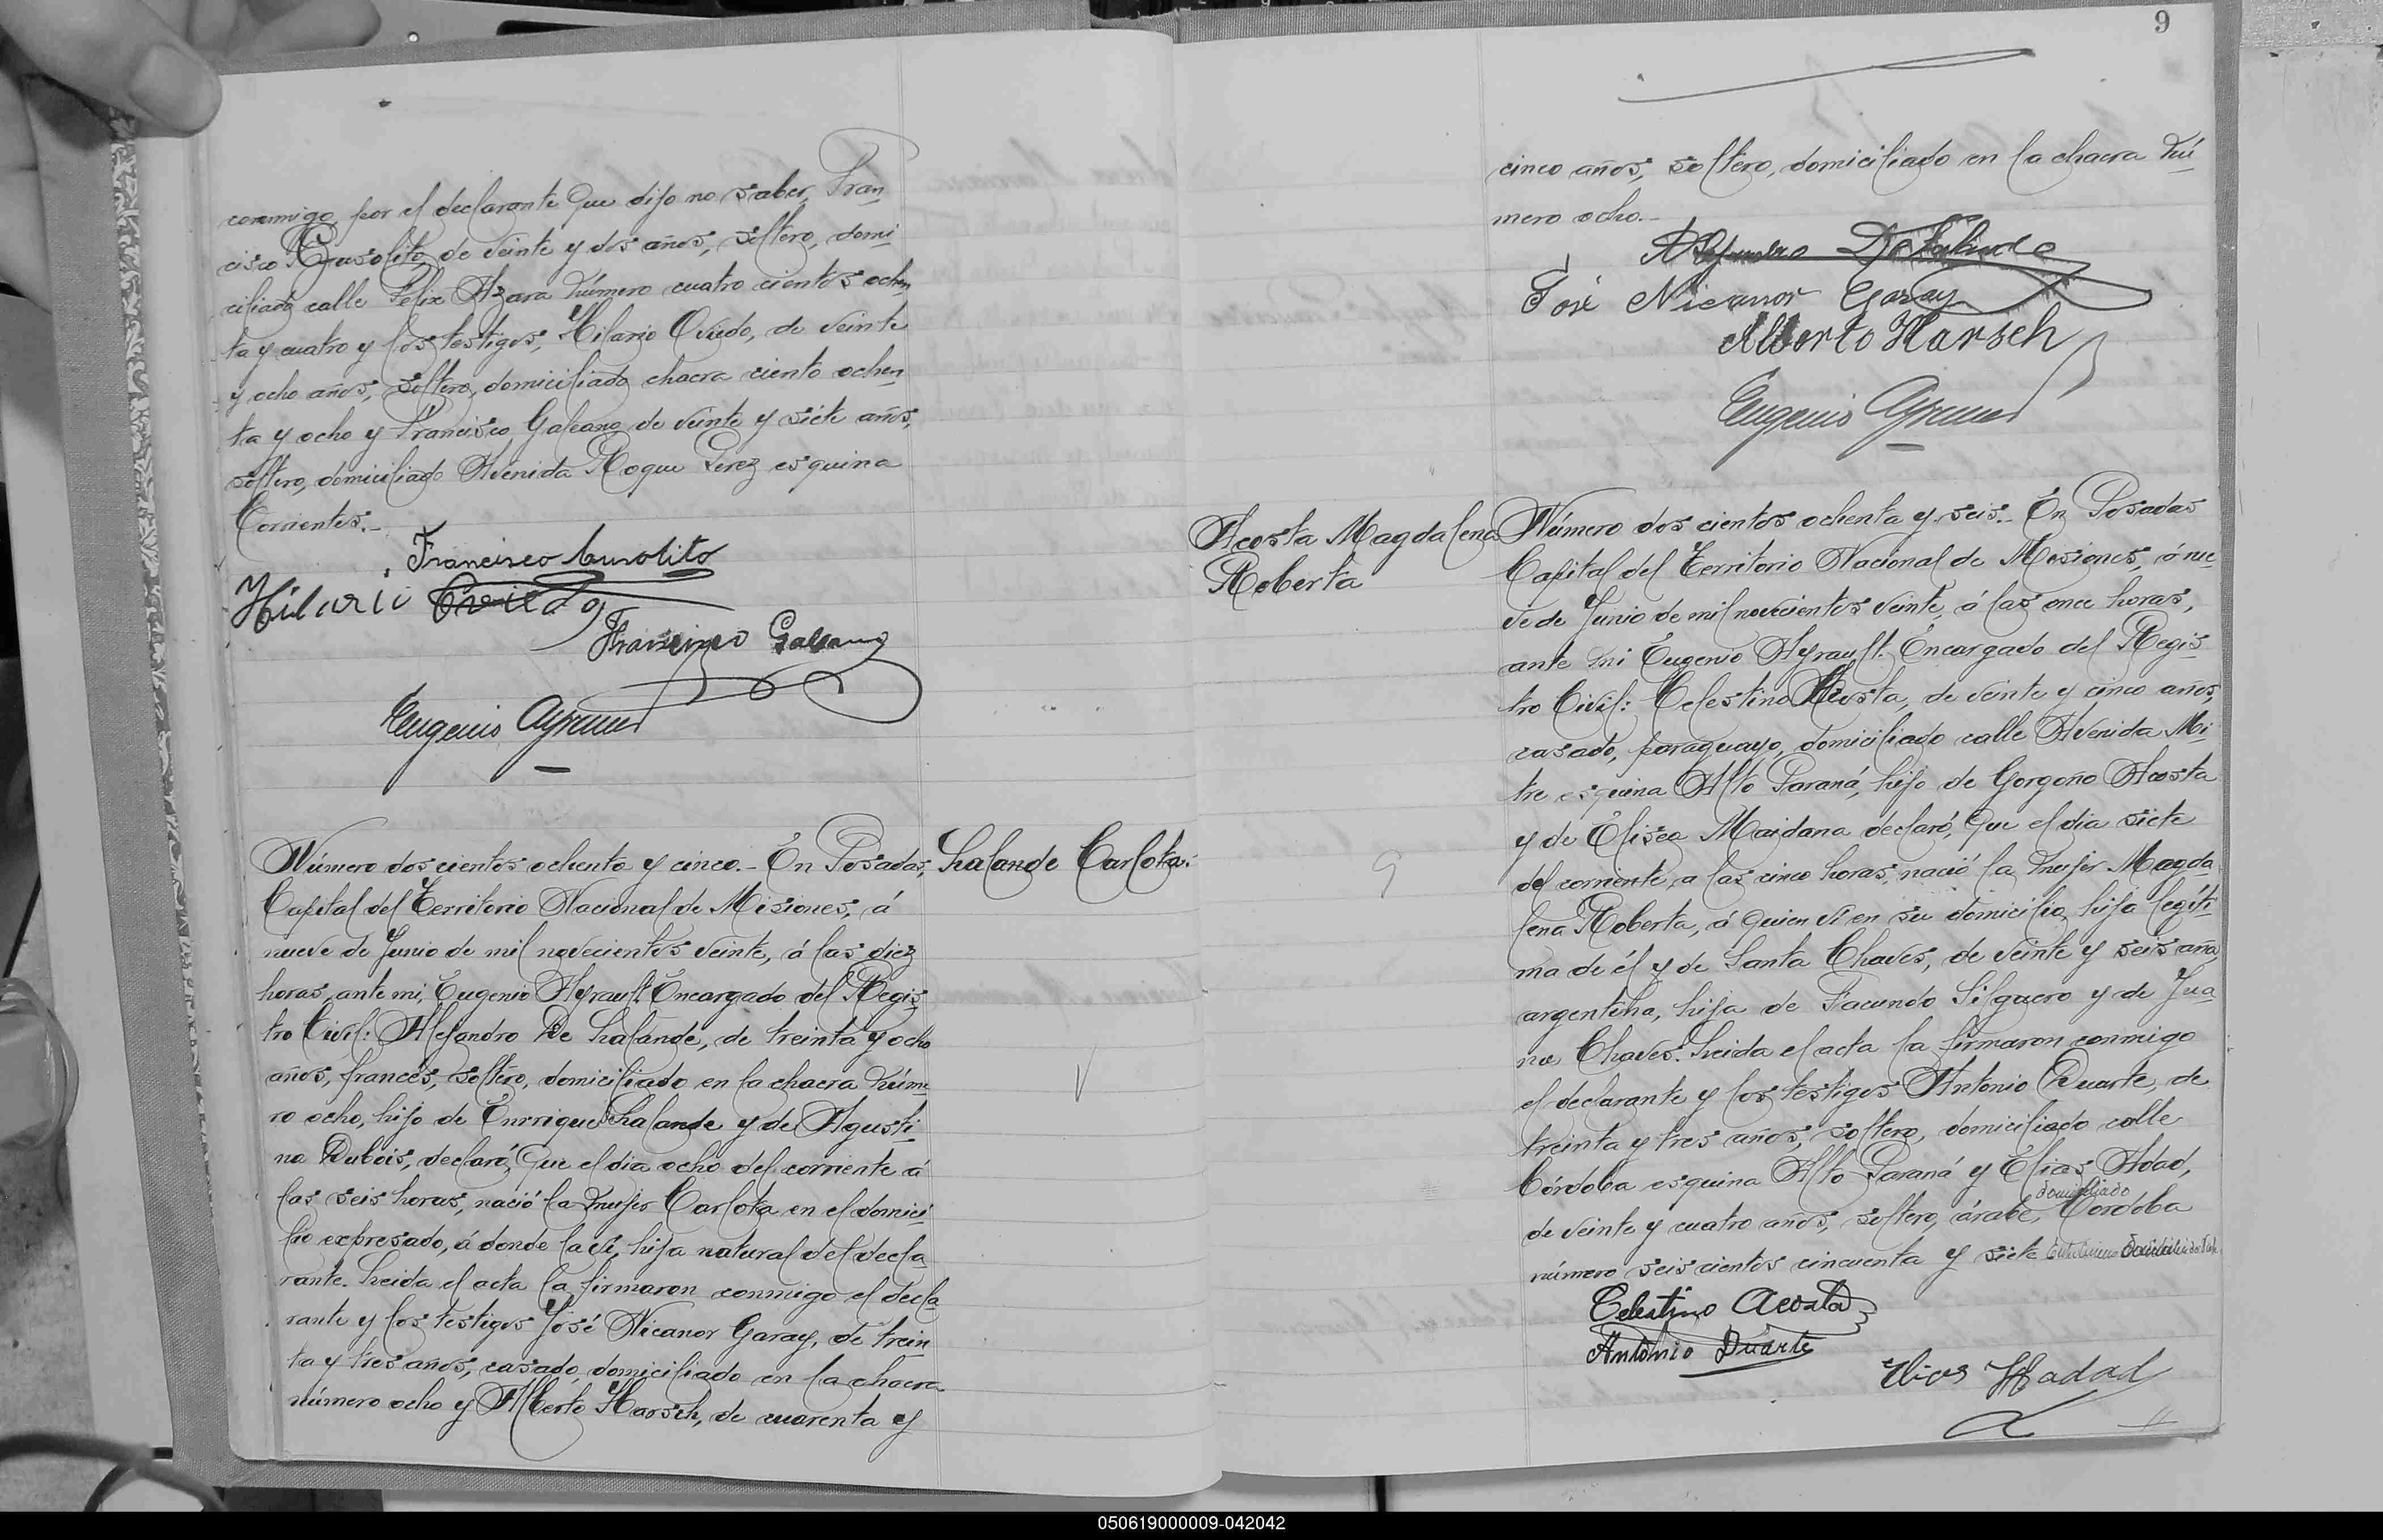 conmigo, por el declarante que dijo no saber, Fran
cisco Cusolito, de veinte y dos años, soltero, domi
ciliado calle Felix Azara número cuatro cientos ochen
ta y cuatro y los testigos, Hilario Oviedo, de veinte
y ocho años, soltero, domiciliado chacra ciento ochen
ta y ocho y Francisco Galeano de veinte y siete años,
soltero, domiciliado Avenida Roque Perez esquina
Corrientes.-
Francisco Cusolito
Hilario Oviedo
Francisco Galeano
Eugenio Ayrault
Número dos cientos ochenta y cinco.- En Posadas,
Lalande Carlota.
Capital del Territorio Nacional de Misiones, á
nueve de Junio de mil novecientos veinte, á las diez
horas, ante mi, Eugenio Ayrault Encargado del Regis
tro Civil: Alejandro De Lalande, de treinta y ocho
años, francés, soltero, domiciliado en la chacra núme
ro ocho, hijo de Enrrique Lalande y de Agusti
na Dubois, declaró, que el dia ocho del corriente á
las seis horas, nació la mujer Carlota en el domici
lio expresado, á donde la ví, hija natural del decla
rante. Leida el acta la firmaron conmigo el decla
rante y los testigos José Nicanor Garay, de trein
ta y tres años, casado, domiciliado en la chacra
número ocho y Alberto Harsch, de cuarenta y
9
cinco años, soltero, domiciliado en la chacra nú
mero ocho.-
Alejandro De Lalande
José Nicanor Garay
Alberto Harsch
Eugenio Ayrault
Acosta Magdalena
Roberta
Número dos cientos ochenta y seis.- En Posadas
Capital del Territorio Nacional de Misiones, á nue
ve de Junio de mil novecientos veinte, á las once horas,
ante mi Eugenio Ayrault Encargado del Regis
tro Civil: Celestino Acosta, de veinte y cinco años,
casado, paraguayo, domiciliado calle Avenida Mi
tre esquina Alto Paraná, hijo de Gorgoño Acosta
y de Elisea Maidana declaró, que el dia siete
del corriente, a las cinco horas, nació la mujer Magda
lena Roberta, á quien ví en su domicilio, hija legíti
ma de él y de Santa Chaves, de veinte y seis años
argentina, hija de Facundo Silguero y de Jua
na Chaves. Leida el acta la firmaron conmigo
el declarante y los testigos Antonio Duarte, de
treinta y tres años, soltero, domiciliado calle
Córdoba esquina Alto Paraná y Elias Adad,
domiciliado
de veinte y cuatro años, soltero, árabe, Córdoba
número seis cientos cincuenta y siete
Celestino Acosta
Antonio Duarte
Elias Hadad
9